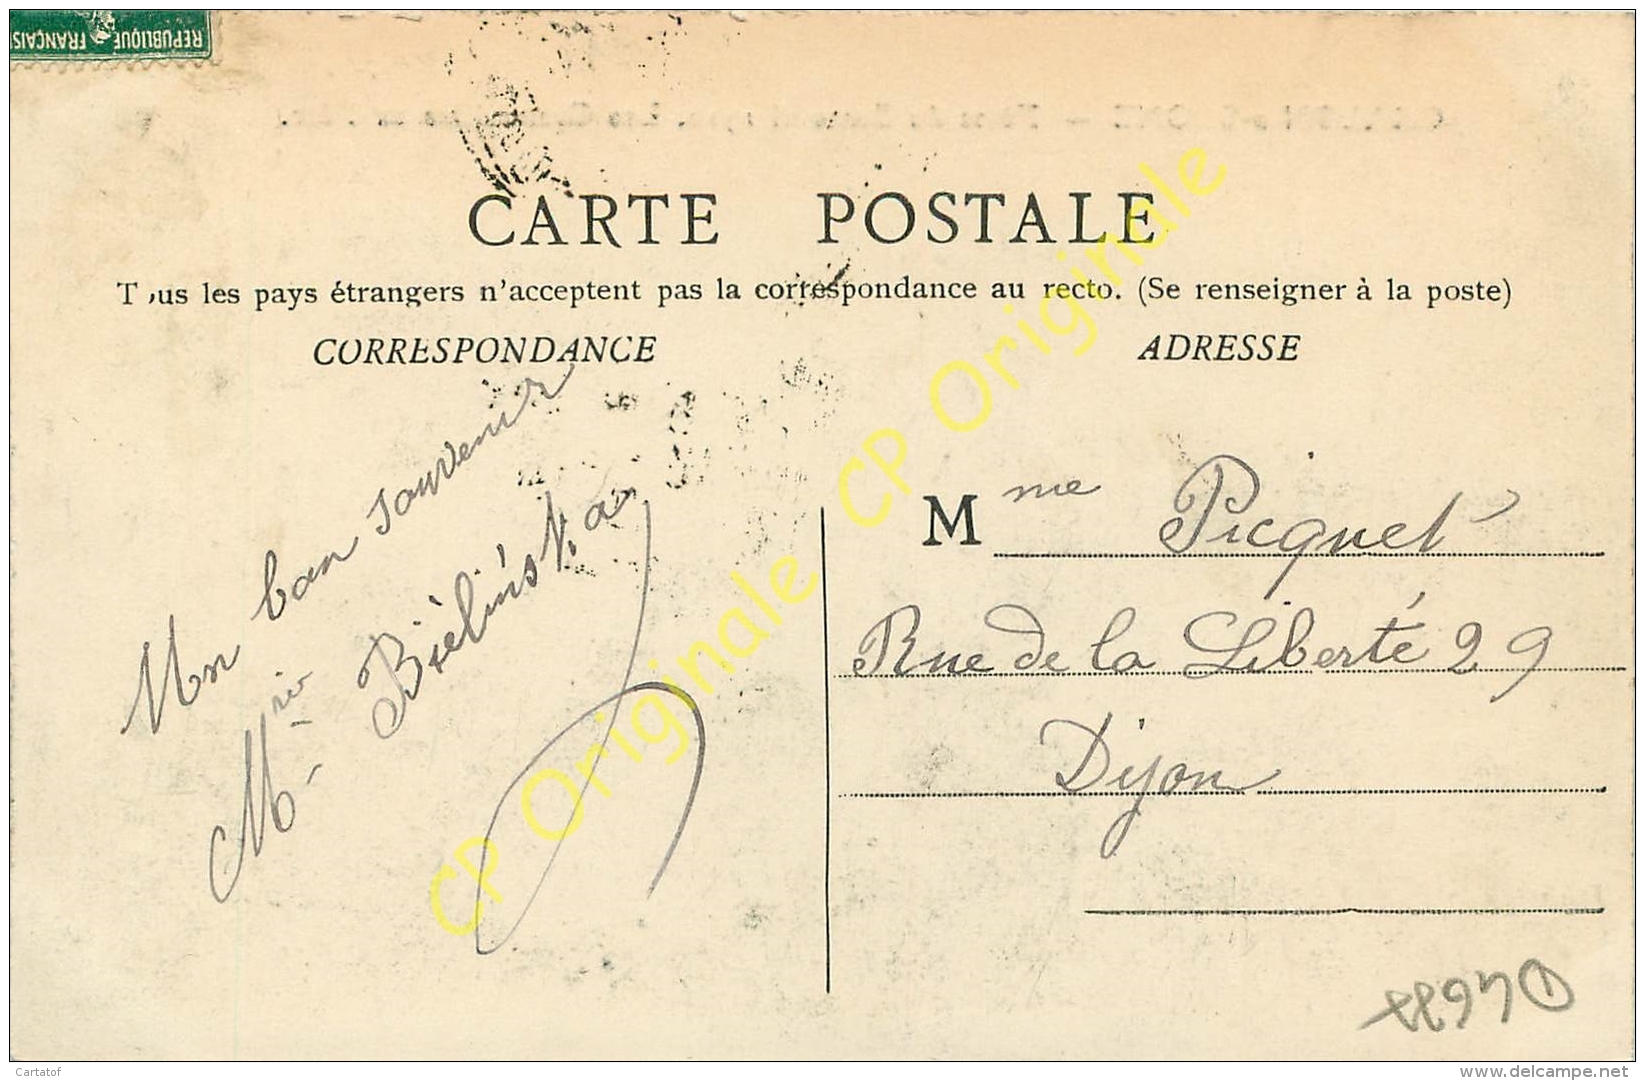 RÉPUBLIQUE FRANÇAIS
CARTE POSTALE
Tous les pays étrangers n'acceptent pas la correspondance au recto. (Se renseigner à la poste)
CORRESPONDANCE
ADRESSE
Mon bon souvenir
Bielinska
Mme Picquet
Rue de la Liberté 29
Dijon
CP Originale CP Originale CP Originale
Cartatof
www.delcampe.net